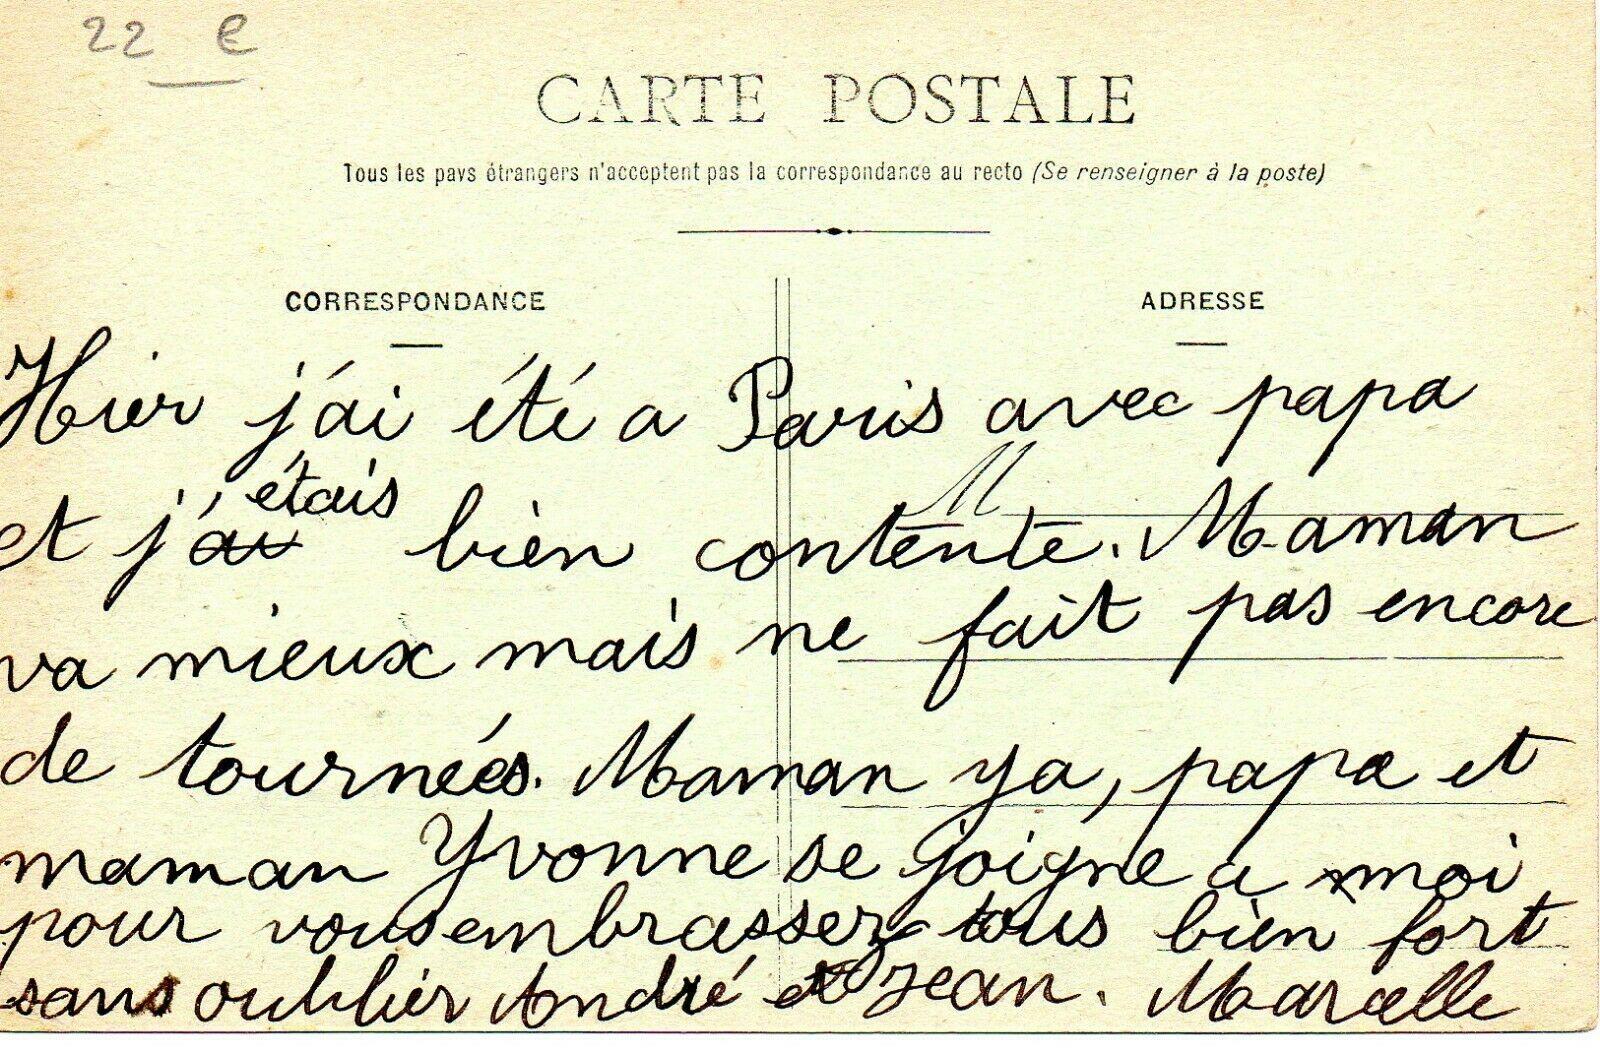 22 €
CARTE POSTALE
Tous les pays étrangers n'acceptent pas la correspondance au recto (Se renseigner à la poste)
CORRESPONDANCE
ADRESSE
M
Hier j'ai été a Paris avec papa
et j'étais bien contente. Maman
va mieux mais ne fait pas encore
de tournées. Maman ya, papa et
maman Yvonne se joigne a moi
pour vous embrasser tous bien fort
sans oublier André et Jean. Marcelle